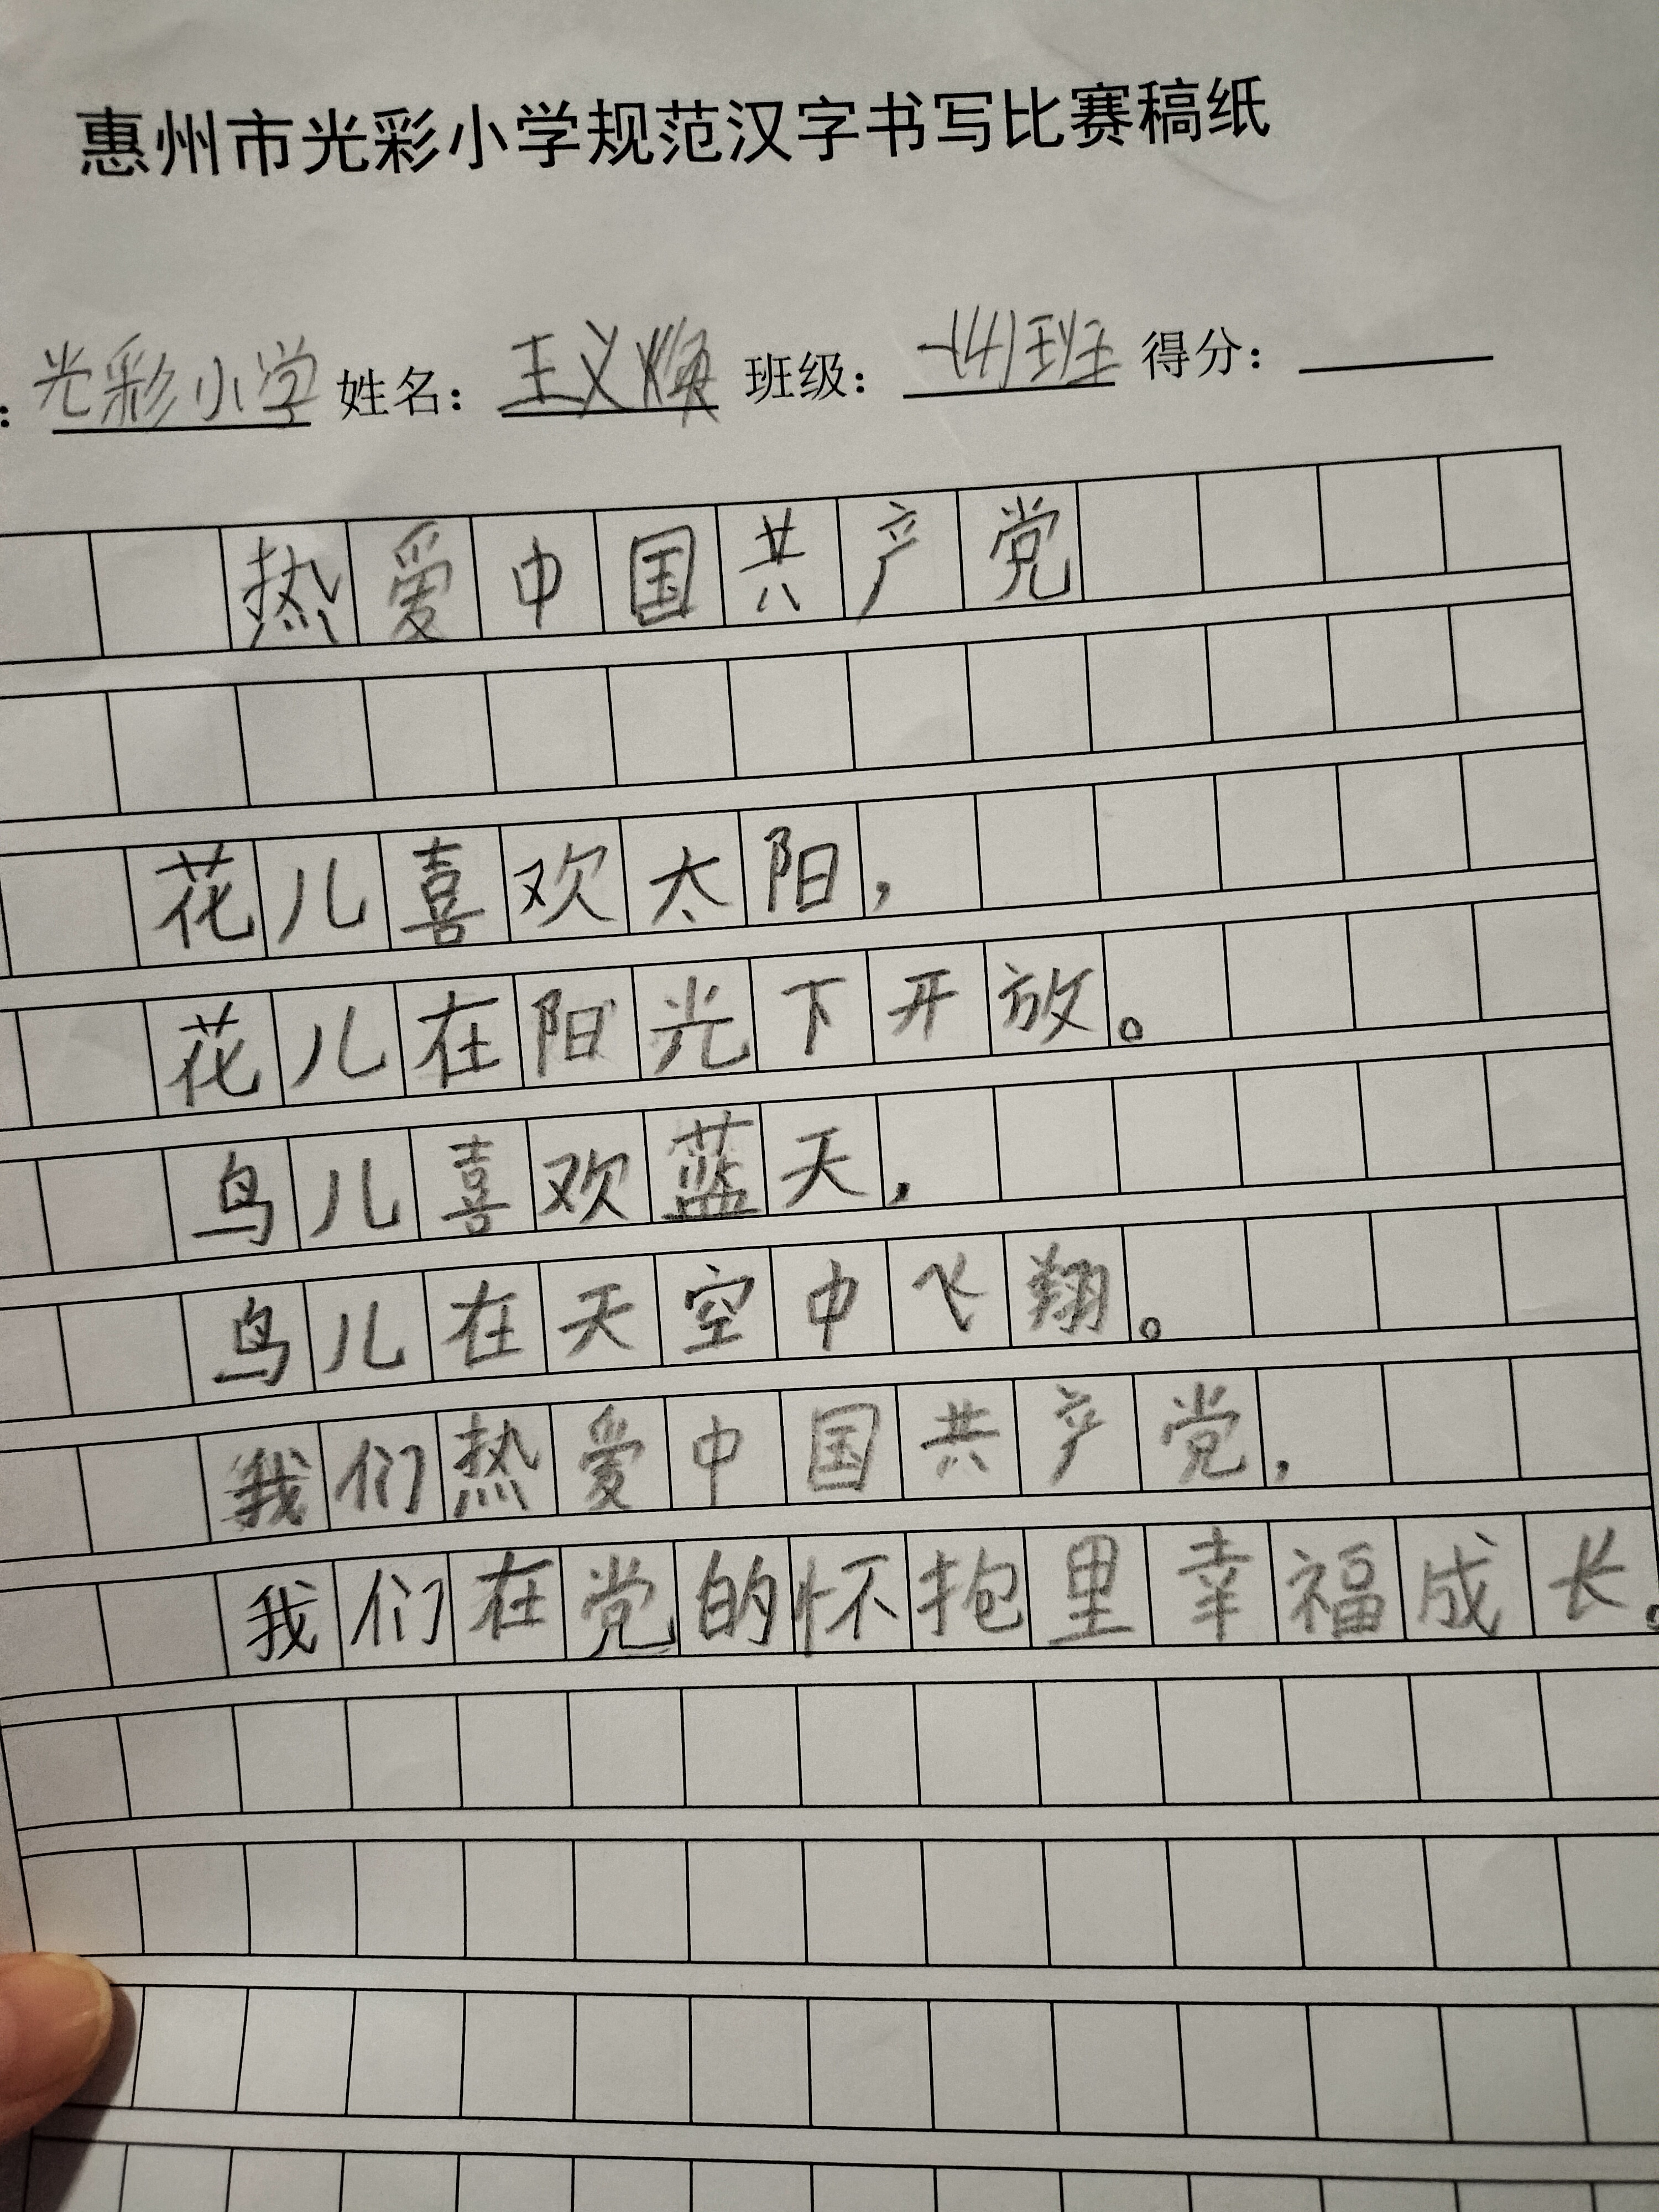 惠州市光彩小学规范汉字书写比赛稿纸
：光彩小学 姓名：王义焕 班级：一(4)班 得分：
热爱中国共产党
花儿喜欢太阳，
花儿在阳光下开放。
鸟儿喜欢蓝天，
鸟儿在天空中飞翔。
我们热爱中国共产党，
我们在党的怀抱里幸福成长。